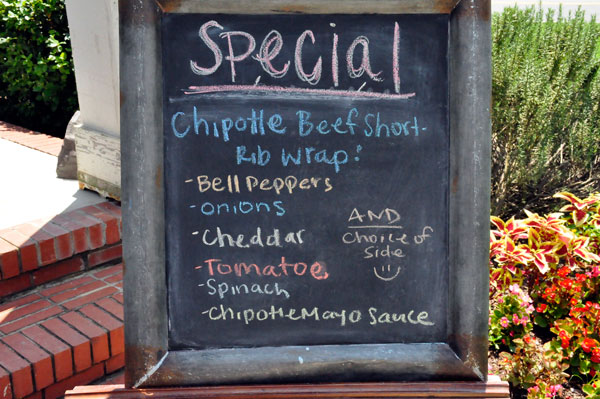 Special
Chipotle Beef Short-
Rib Wrap!
-Bell Peppers
-onions
-Cheddar
-Tomatoe
-Spinach
-Chipotle Mayo Sauce
AND
Choice of
side